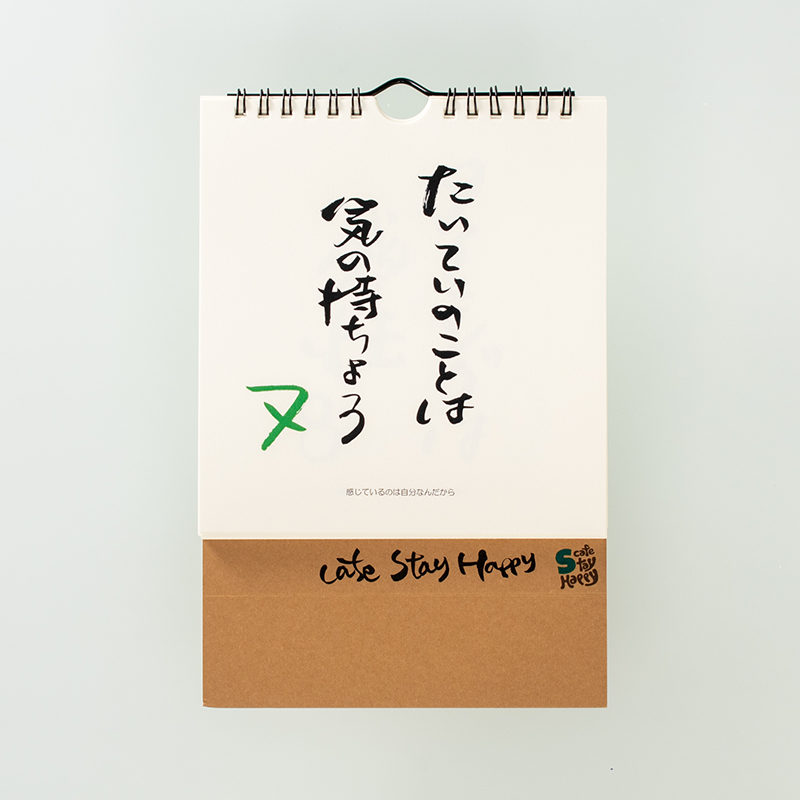 たいていのことは
気の持ちよう
ヌ
感じているのは自分なんだから
cafe Stay Happy
cafe
Stay
Happy